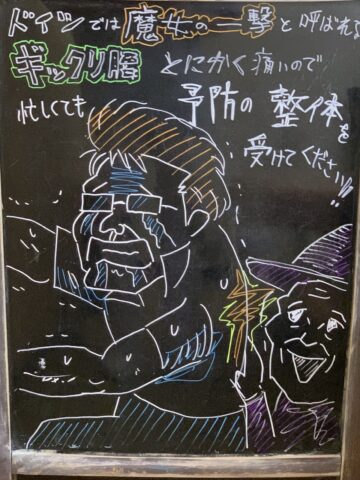 ドイツでは魔女の一撃と呼ばれる
ギックリ腰 とにかく痛いので
忙しくても 予防の 整体を
受けてください!!